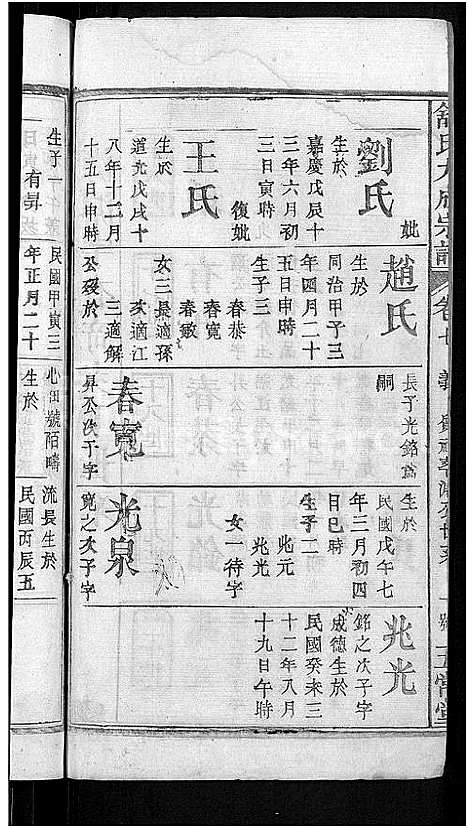 舒氏大成宗譜
卷七
五常堂
劉氏 妣
生於
嘉慶戊辰十
三年六月初
三日寅時
王氏 復妣
生於
道光戊戌十
八年十二月
十五日申時
趙氏
生於
同治甲子三
年四月二十
五日申時
生子三
春恭
春寬
春敏
女三長適孫
次適江
三適解
公歿於
長子光銘為
嗣
春寬
昇公次子字
生於
民國戊午七
年三月初四
日巳時
生子二
兆元
兆光
女一待字
光泉
寬之次子字
兆光
銘之次子字
成德生於
民國癸未三
十二年八月
十九日午時
生子一
有昇
民國甲寅三
年正月二十
心田號陌疇
生於
流長生於
民國丙辰五